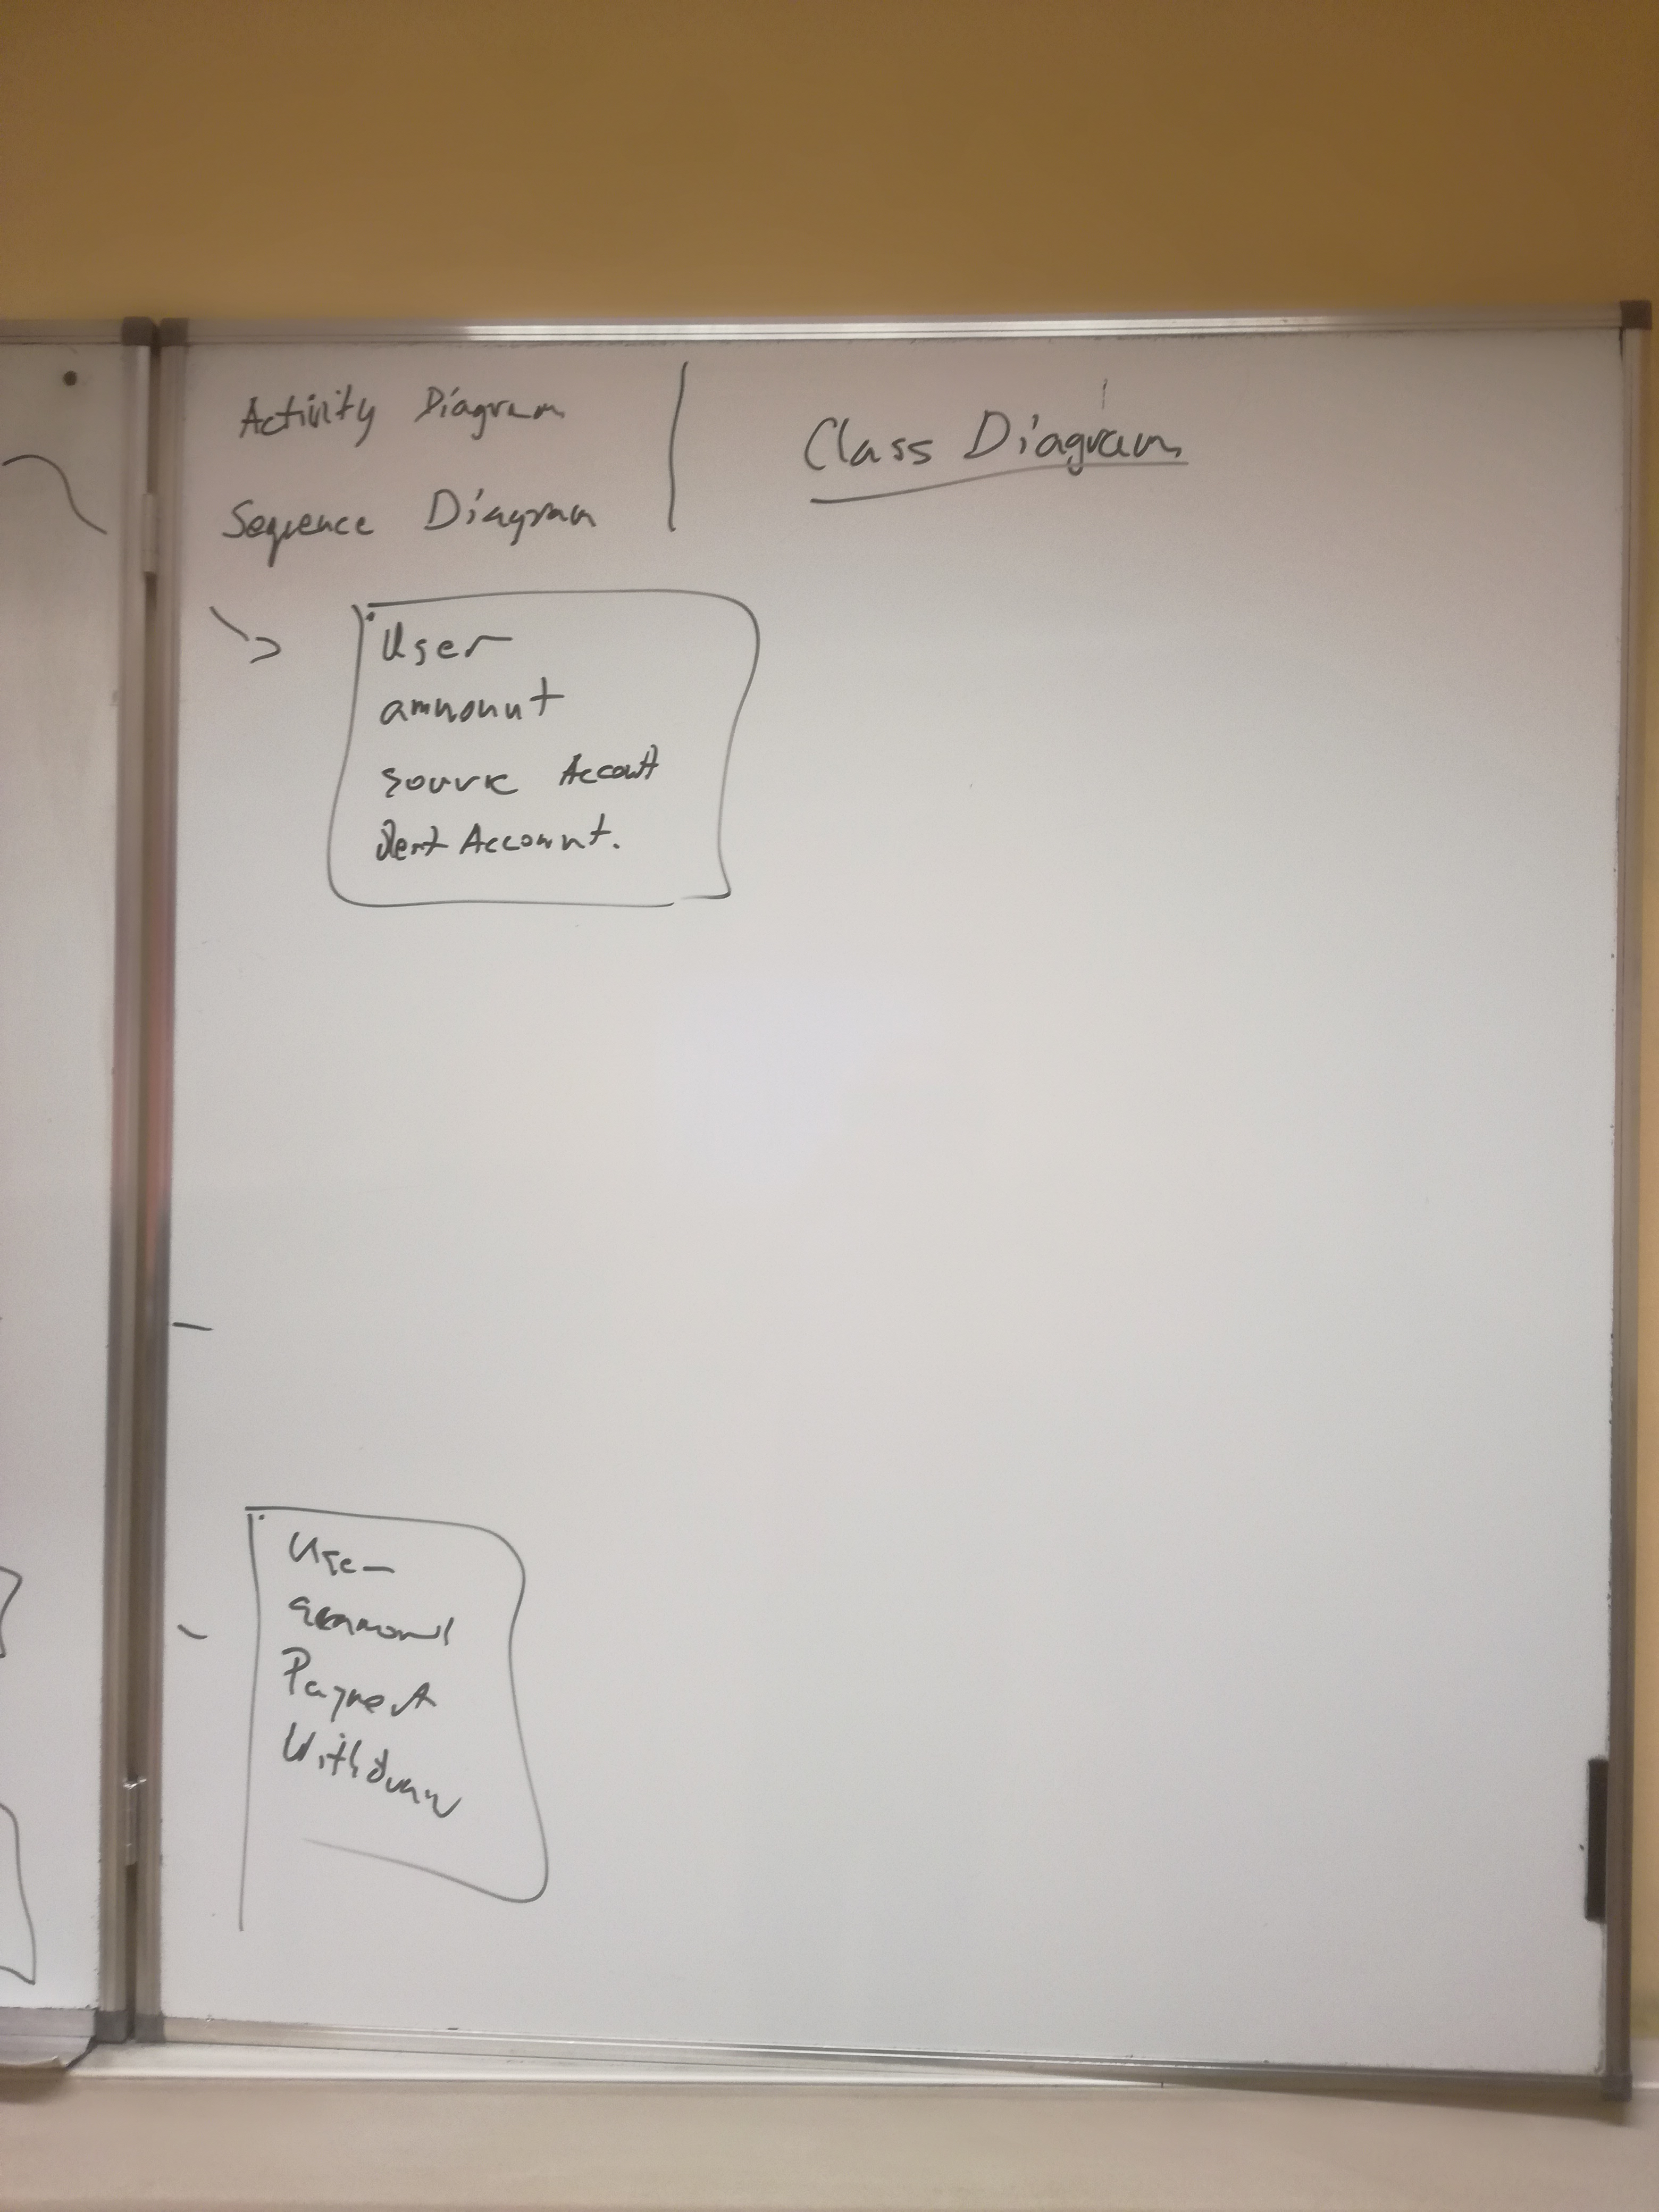 Activity Diagram
Sequence Diagram
Class Diagram
User
amuonut
Account
Dest Account.
User
Payment
Withdraw